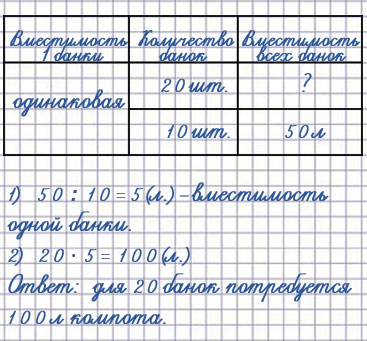 Вместимость 1 банки
Количество банок
Вместимость всех банок
одинаковая
20 шт.
?
10 шт.
50 л
1) 50 : 10 = 5 (л.) – вместимость
одной банки.
2) 20 · 5 = 100 (л.)
Ответ: для 20 банок потребуется
100 л компота.